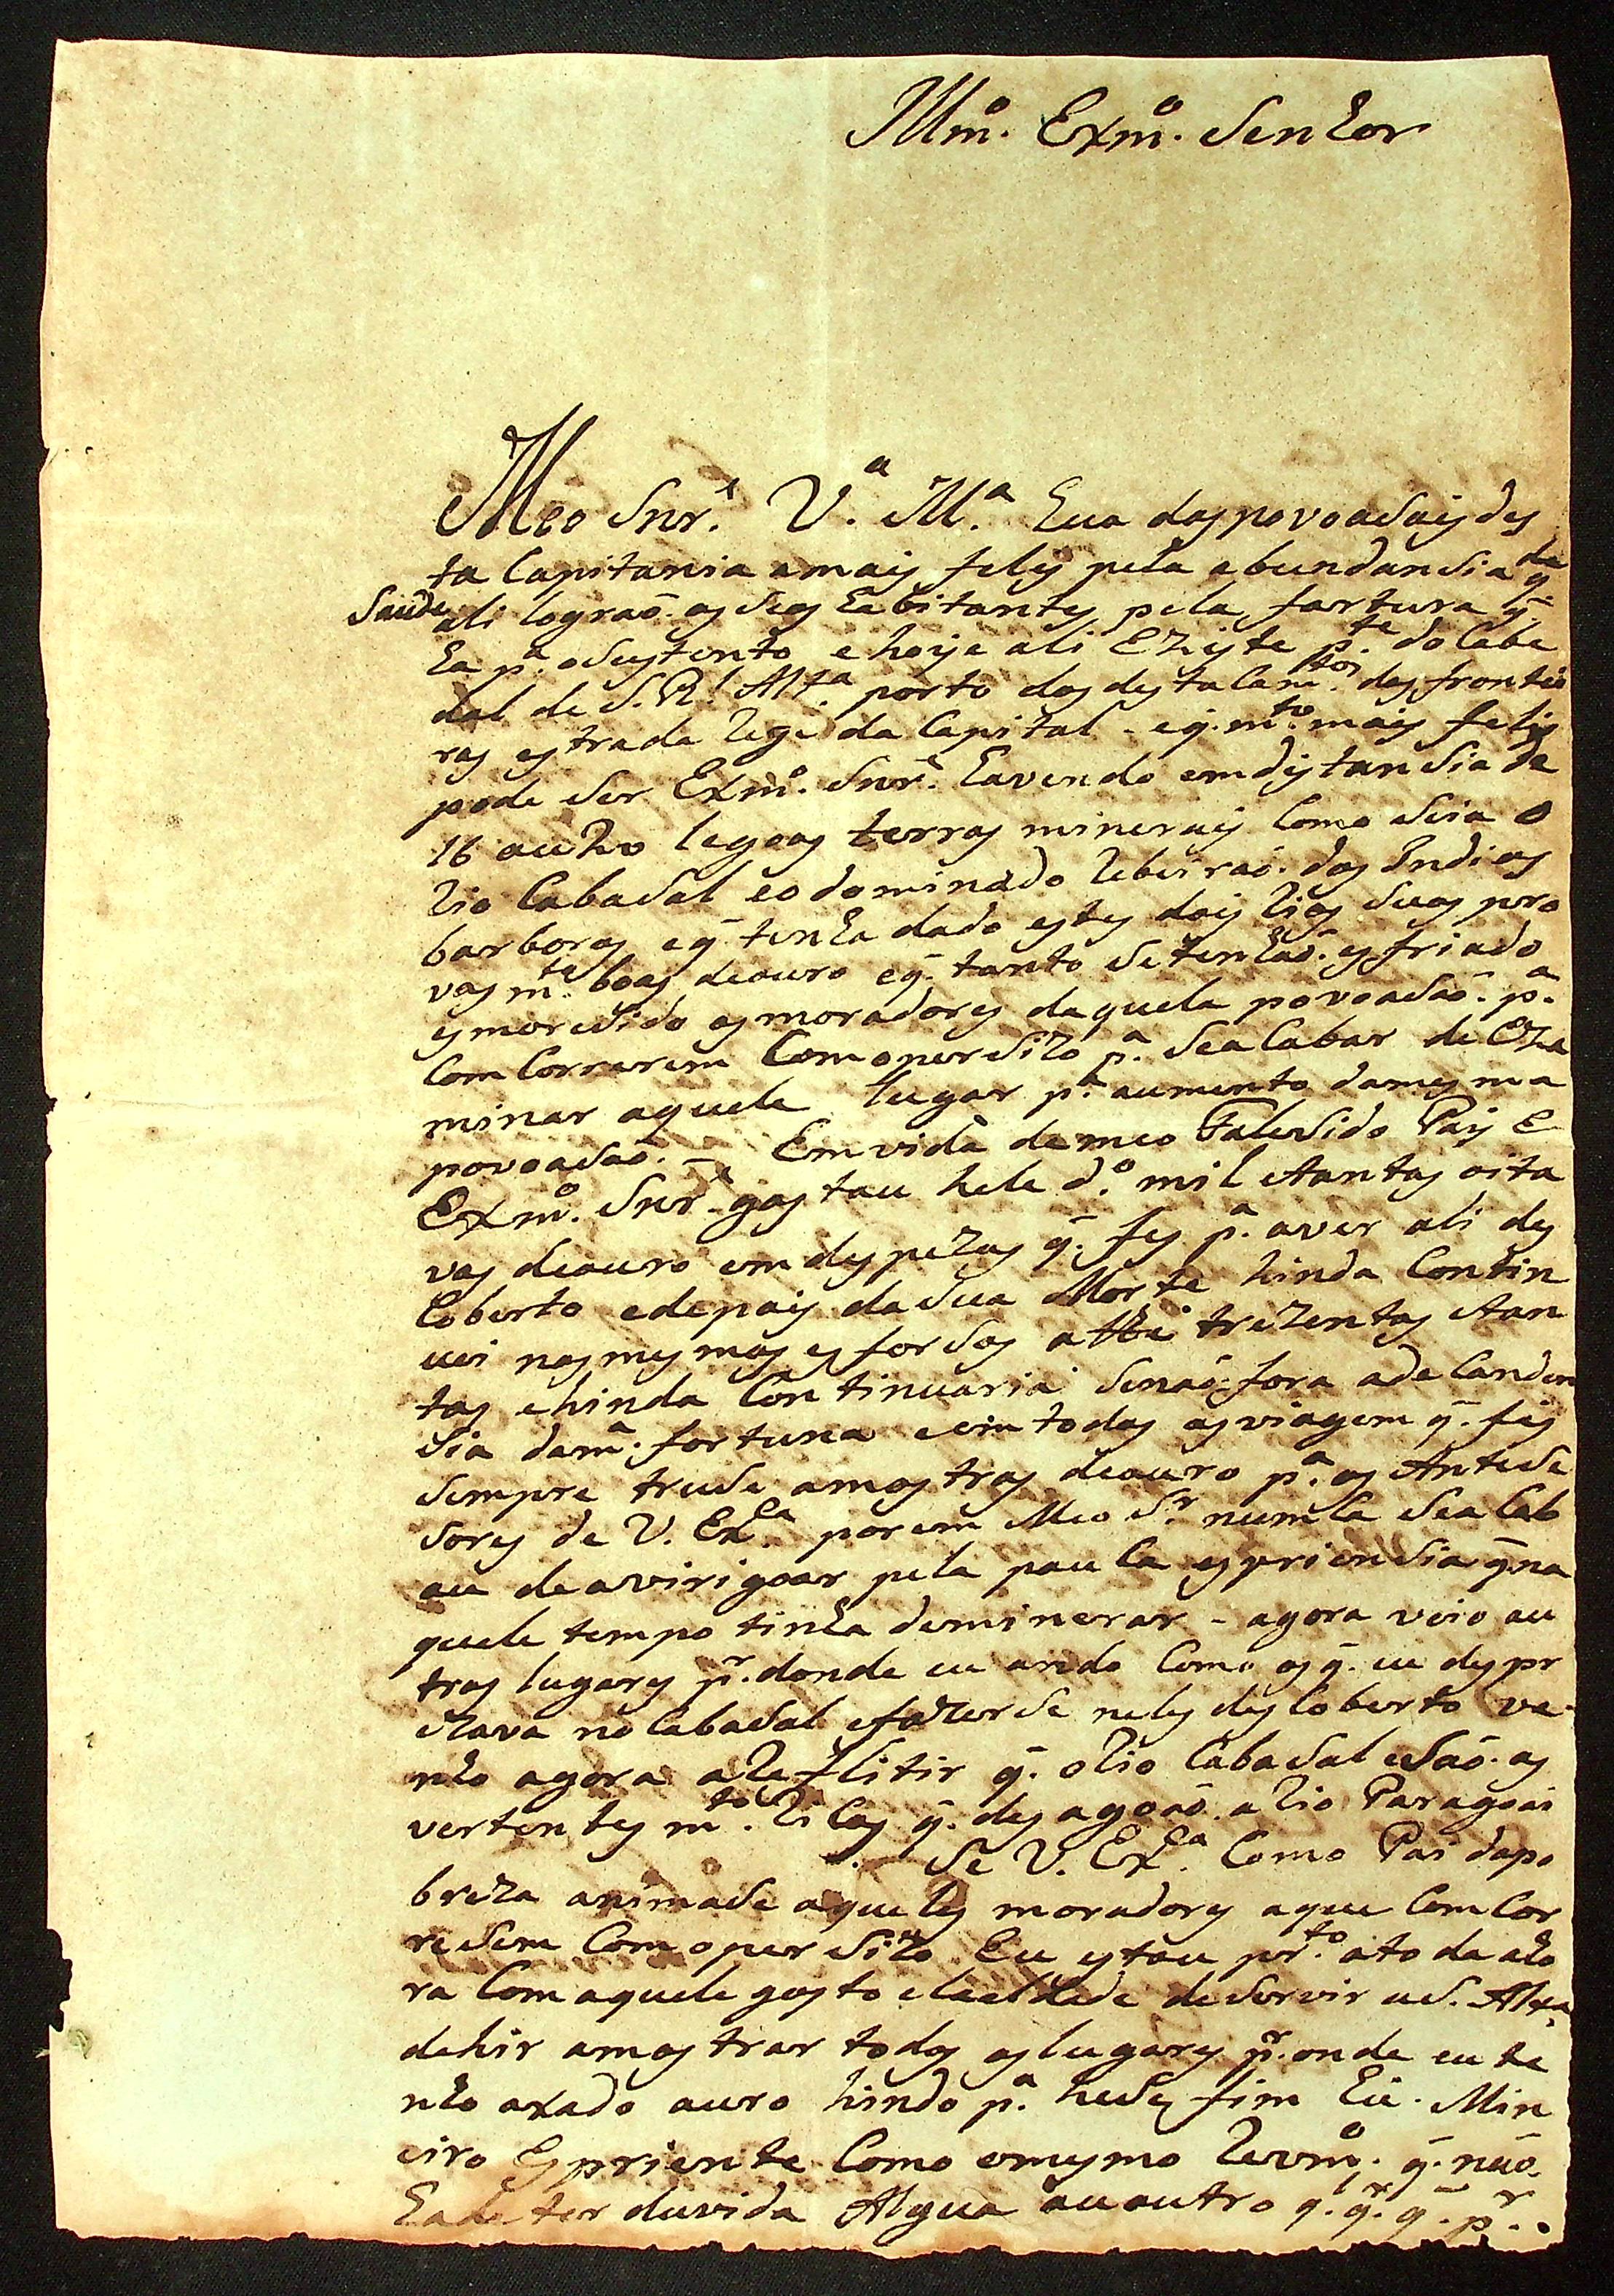 Illmº. Exmº. Senhor
Meo Snr.ͬ V.ª M.ª hua das povoasois des
ta Capitania a mais felis pela abundansia de
Saude ali lograõ. os seos habitantes pela fartura q̃.
ha p.ª o sustento e hoije ali Eziste p.te do Cabe
dal de S. R.l Alt.ª porto dos destacam.tos das frontei
ras estrada Regi da Capital - e q̃. m.to mais felis
pode ser Exmº. Snr.ͬ havendo em distansia de
16 au 20 legoas terras minerais Como seia o
Rio Cabasal e o dominado Ribeiraõ. dos Indios
barboros e q̃ tenha dado estes dois Rios suas pro
vas m.te boas de ouro e q̃. tanto se tenhaõ. esfriado
esmoresido os moradores daquela povoasaõ. p.ª
Com Correrem Com o persizo p.ª se a Cabar de Eza
minar aquele lugar p.ª aumento da mesma
povoasaõ. - Em vida de meo Falesido Pay e
Exmº. Snr.ͬ gastou hele d.º mil e tantas oita
vas de ouro em despezas q̃. fes p.ª aver ali des
Coberto e depois da sua Morte hinda Contin
uei nos mesmos esforsos athe trezentas e tan
tas e hinda Continuaria senaõ. fora a de Canden
sia da mª. fortuna e em todas as viagem q̃. fis
sempre truse amostras de ouro p.ª os Antese
sores de V. Ex.ª porem Meo S.r numCa se a Cab
au de avirigoar pela pouCa espriensia q̃ na
quele tempo tinha de minerar - agora veio au
tros lugares p.r donde eu ando Como os q̃. eu despr
ezava no Cabasal e fazerse neles desCoberto ve
nho agora a Reflitir q̃. o Rio Cabasal e saõ. as
vertentes m.to RiCas q̃. desagoaõ. a Rio Paragoai
Se V. Ex.ª Como Pai da po
breza animase aqueles moradores a que Com Cor
resem Com o persizo Eu estou pr.to a toda a ho
ra Com aquele gosto e lealdade de servir a S. Alt.ª
de hir amostrar todos os lugares p.r onde eu te
nho axado auro hindo p.ª hese fim hũ. Min
eiro Espriente Como o mesmo Revmº. q̃. naõ.
ha de ter duvida Algua au autro q. q.r q̃. p.r.